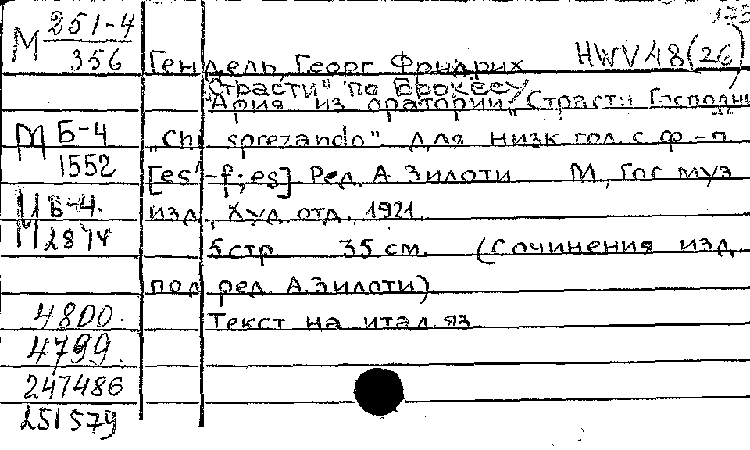 М 251-4
356
Гендель, Георг Фридрих HWV 48 (26)
Страсти" по Брокесу
Ария из оратории „Страсти Господни
„Chi sprezando" для низк гол. с ф-п
[es'-f; es] Ред. А Зилоти М, Гос муз
изд., Худ. отд. 1921.
5 стр 35 см. (Сочинения изд.
под ред. А. Зилоти)
Текст на итал. яз
М Б-4
1552
М Б-4.
2874
4800.
4799.
247486
251579